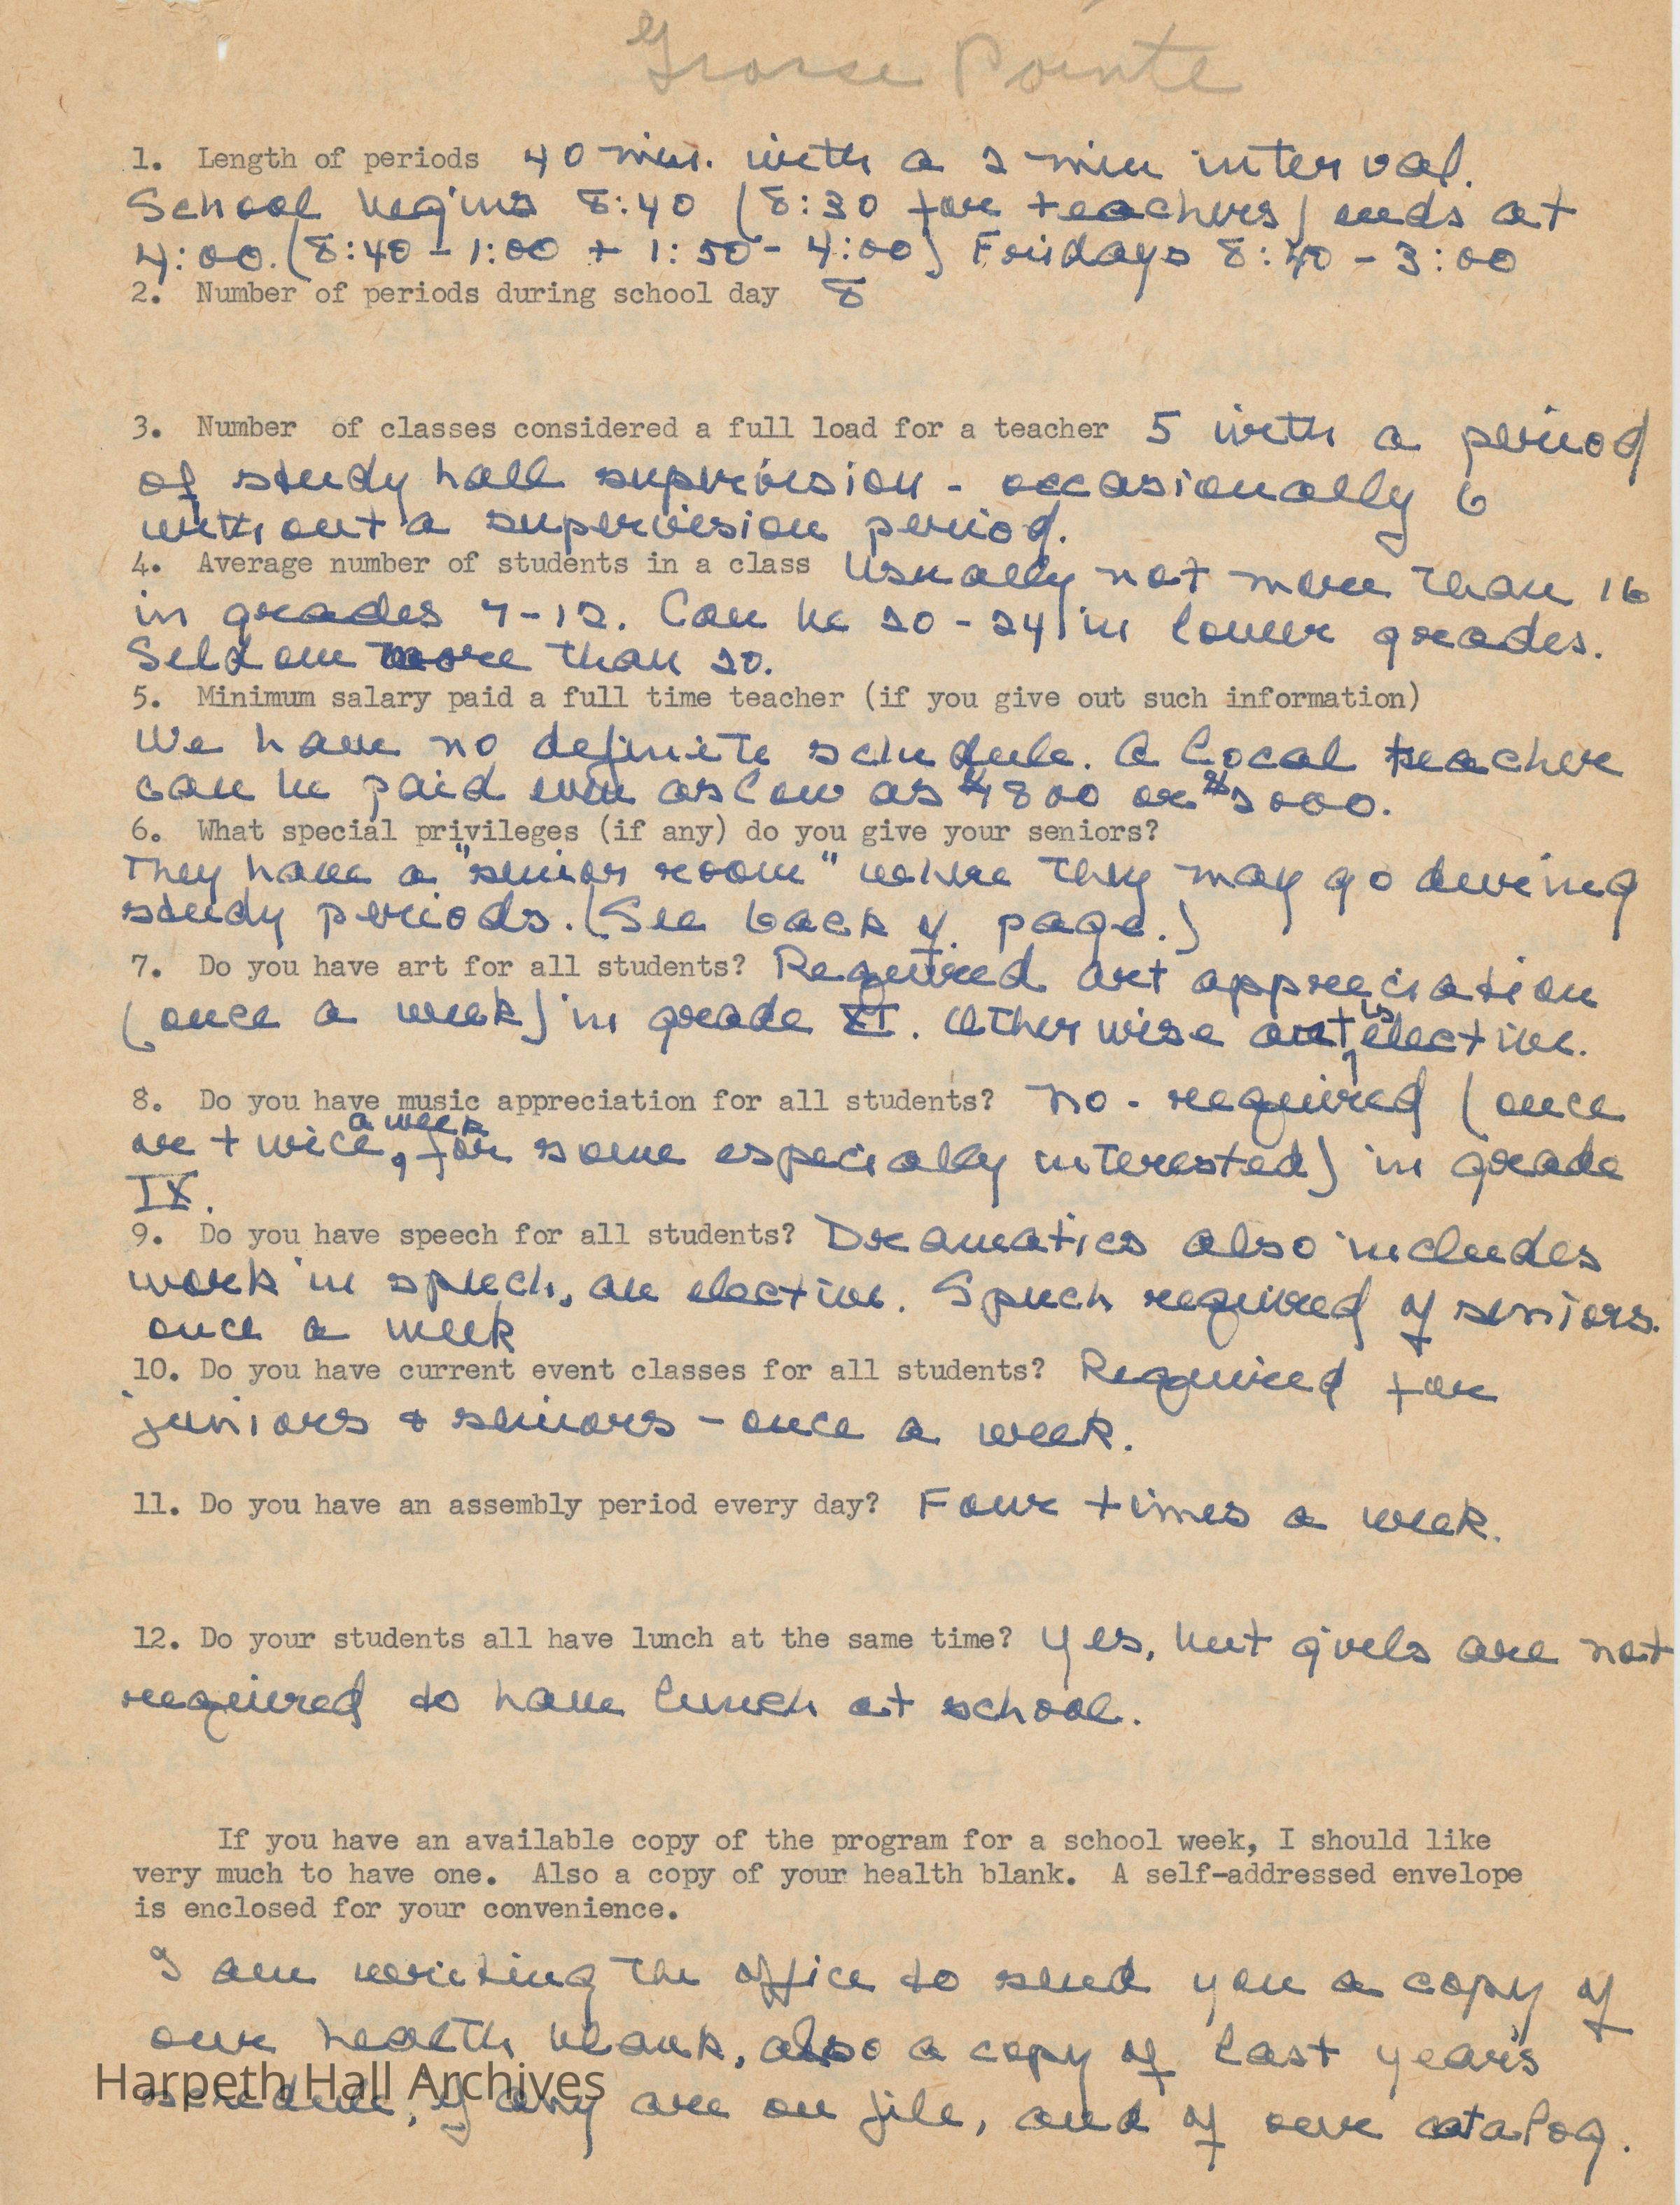 Grosse Pointe
1. Length of periods 40 min. with a 2 min interval.
School begins 8:40 (8:30 for teachers) ends at
4:00. (8:40 - 1:00 + 1:50 - 4:00) Fridays 8:40 - 3:00
2. Number of periods during school day 8
3. Number of classes considered a full load for a teacher 5 with a period
of study hall supervision - occasionally 6
without a supervision period.
4. Average number of students in a class Usually not more than 16
in grades 7-12. Can be 20-24 in lower grades.
Seldom more than 20.
5. Minimum salary paid a full time teacher (if you give out such information)
We have no definite schedule. A local teacher
can be paid even as low as $1800 or $2000.
6. What special privileges (if any) do you give your seniors?
They have a "senior room" where they may go during
study periods. (See back of page.)
7. Do you have art for all students? Required art appreciation
(once a week) in grade XI. Otherwise art is elective.
8. Do you have music appreciation for all students? No - required (once
or twice a week, for some especially interested) in grade
IX.
9. Do you have speech for all students? Dramatics also includes
work in speech, an elective. Speech required of seniors.
once a week
10. Do you have current event classes for all students? Required for
juniors & seniors - once a week.
11. Do you have an assembly period every day? Four times a week.
12. Do your students all have lunch at the same time? Yes, but girls are not
required to have lunch at school.
If you have an available copy of the program for a school week, I should like
very much to have one. Also a copy of your health blank. A self-addressed envelope
is enclosed for your convenience.
I am writing the office to send you a copy of
our health blank, also a copy of last year's
schedule, if any are on file, and of our catalog.
Harpeth Hall Archives